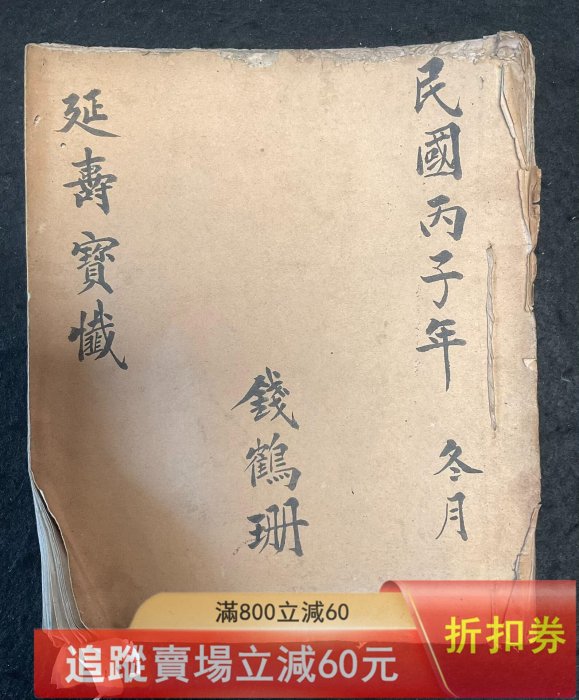 民國丙子年 冬月
錢鶴珊
延壽寶懺
滿800立減60
追蹤賣場立減60元
折扣券